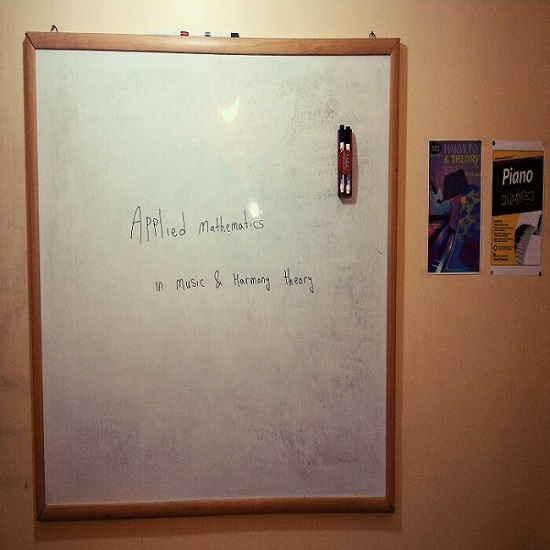 Applied mathematics
in music & Harmony theory
HARMONY
& THEORY
Piano
DUMMIES